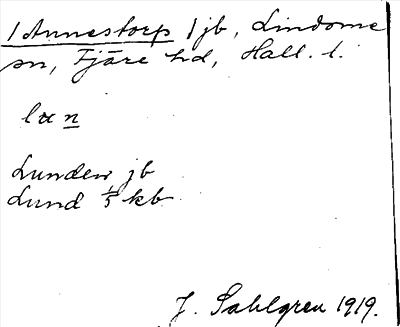 / Annestorp / jb, Lindome
sn, Fjäre hd, Hall. l.
lun
Lunden jb
Lund 1/5 kb
J. Sahlgren 1919.